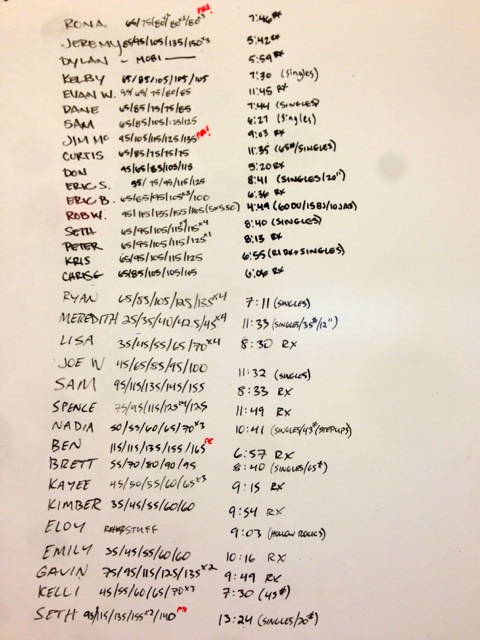 RONA 65/75/80x4/80x2/80x3 PR! 7:46 RX
JEREMY 85/95/105/135/150x3 5:42 RX
DYLAN - MOBI - 5:59 RX
KELBY 65/85/105/105/105 7:30 (singles)
EVAN W. 55/65/75/80/85 11:45 RX
DANE 65/85/75/75/85 7:44 (SINGLES)
SAM 65/85/105/125/125 6:27 (Singles)
JIM MC 95/105/115/125/135 PR! 9:03 RX
CURTIS 65/85/75/75/75 11:35 (65#/SINGLES)
DON 45/65/85/105/115 5:20 RX
ERIC S. 55/75/95/115/125 8:41 (SINGLES/20")
ERIC B. 65/65/95/105x3/100 6:36 RX
ROB W. 95/115/135/155/165 4:49 (60DU/15BJ/10
SETH 65/95/105/115x4/115x4 8:40 (SINGLES)
PETER 65/95/105/115/125x1 8:13 RX
KRIS 65/95/105/115/125 6:55 (SINGLES)
CHRISG 65/85/105/105/105 6:06 RX
RYAN 65/85/105/125/135x4 7:11 (SINGLES)
MEREDITH 25/35/40/42.5/45x4 11:33 (SINGLES/35#/12")
LISA 35/45/55/65/70x4 8:30 RX
JOE W 45/65/85/95/100 11:32 (SINGLES)
SAM 95/115/135/145/155 8:33 RX
SPENCE 75/95/115/125x4/125 11:49 RX
NADIA 50/55/60/65/70x3 10:41 (SINGLES/43#/STEPUPS)
BEN 115/115/135/155/165 PR 6:57 RX
BRETT 55/70/80/90/95 8:40 (SINGLES/65#)
KAYEE 45/50/55/60/65x3 9:15 RX
KIMBER 35/45/55/60/60 9:54 RX
ELOY STUFF 9:03 (HOLLOW ROCKS)
EMILY 35/45/55/60/60 10:16 RX
GAVIN 75/95/115/125/135x2 9:49 RX
KELLI 45/55/60/65/70x3 7:30 (43#)
SETH 95/115/135/155x2/140 PR 13:24 (SINGLES/20#)